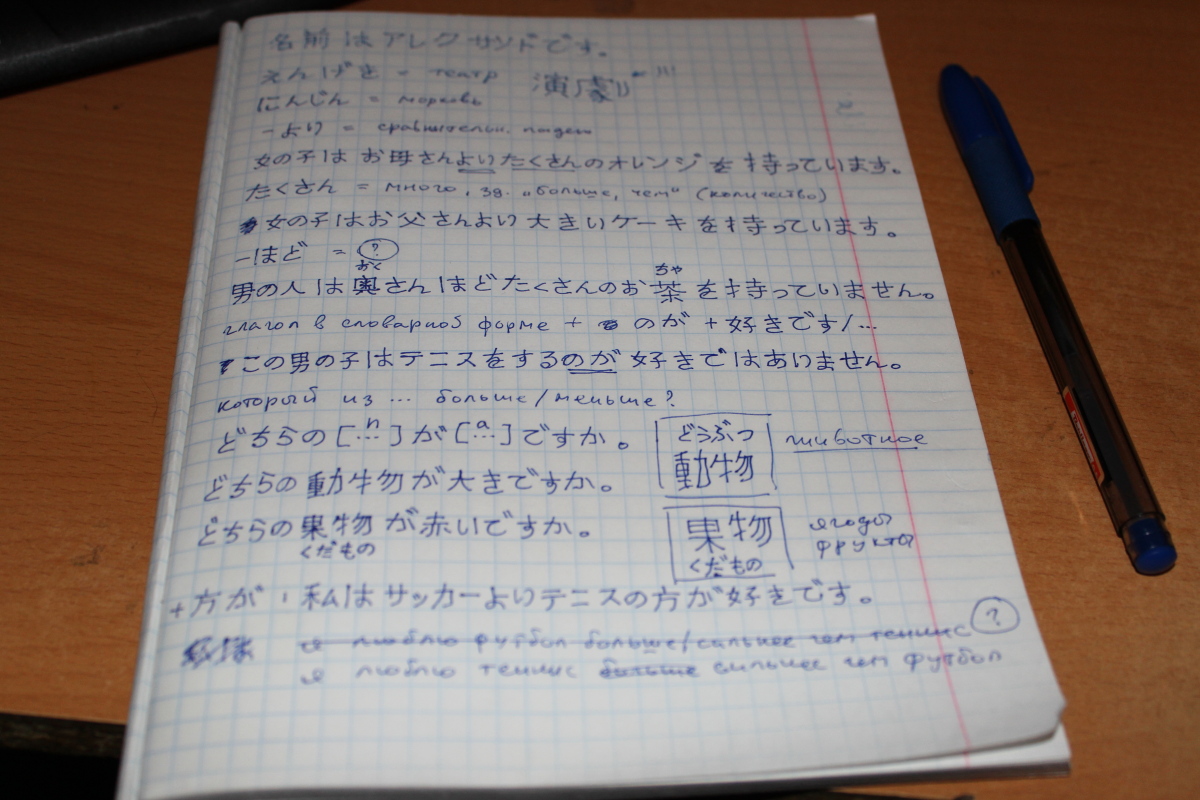 名前はアレクサンドです。
えんげき = театр 演劇
にんじん = морковь
-より = сравнительн.
女の子はお母さんよいたくさんのオレンジを持っています。
たくさん = много, зд. „больше, чем“ (количество)
女の子はお父さんよい大きいケーキを持っています。
-ほど = ?
おく ちゃ
男の人は奥さんほどたくさんのお茶を持っていません。
глагол в словарной форме + のが + 好きです/...
この男の子はテニスをするのが好きではあいません。
который из ... больше/меньше?
どちらの[...n]が[...a]ですか。
どうぶつ
動物 животное
どちらの動物が大きですか。
どちらの果物が赤いですか。
くだもの
果物 ягоды фрукты
くだもの
+方が: 私はサッカーよいテニスの方が好きです。
я люблю футбол больше/сильнее чем теннис ?
я люблю теннис больше сильнее чем футбол